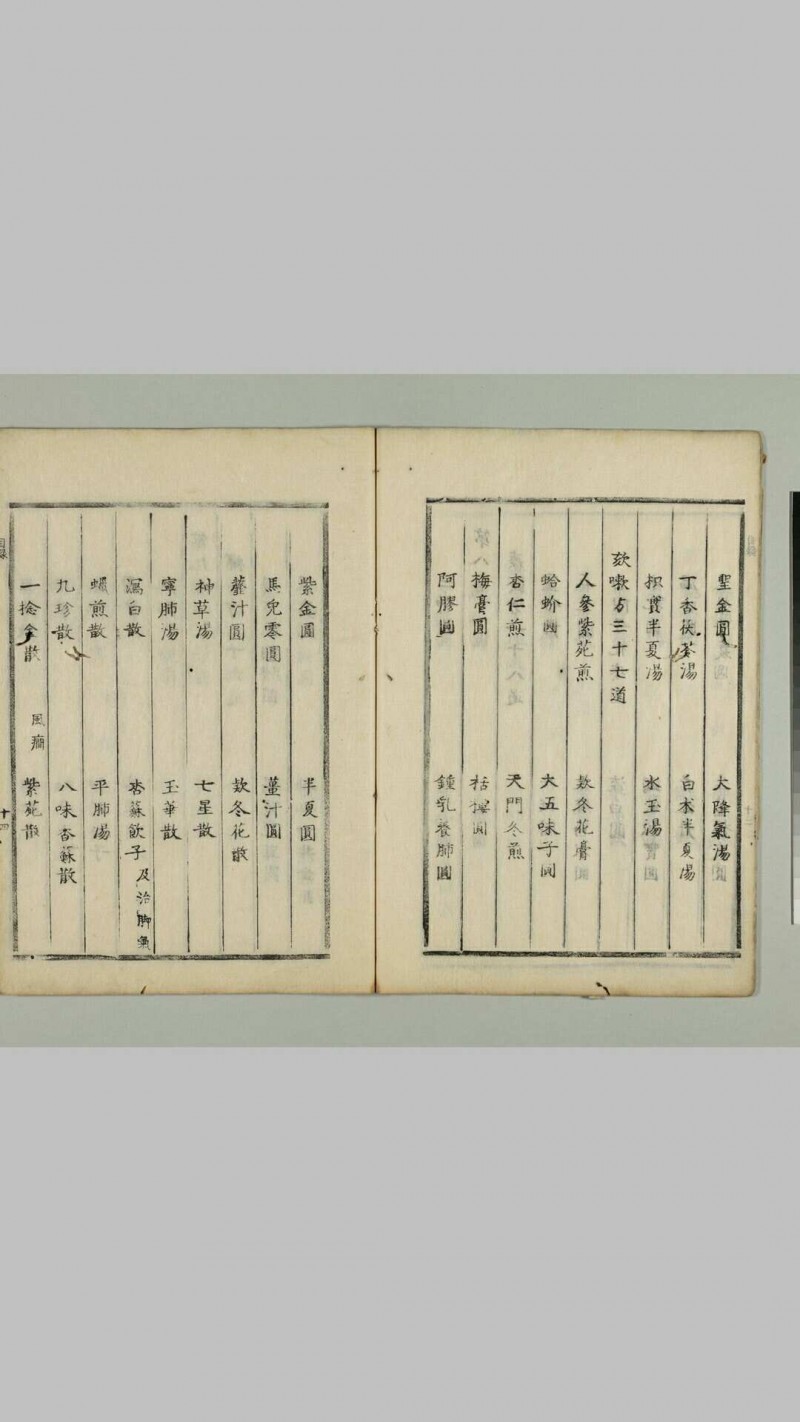 聖金圓　大降氣湯
丁香茯苓湯　白朮半夏湯
枳實半夏湯　水玉湯
欬嗽方三十七道
人參紫菀煎　款冬花膏
蛤蚧圓　大五味子圓
杏仁煎　天門冬煎
梅膏圓　栝樓圓
阿膠圓　鍾乳養肺圓
紫金圓　半夏圓
馬兜零圓　薑汁圓
汁圓　欬冬花散
神草湯　七星散
寧肺湯　玉華散
瀉白散　杏蘇飲子　及治脚氣
煎散　平肺湯
九珍散　八味香蘇散
一捻金散　風癎　紫菀散
目録　十四